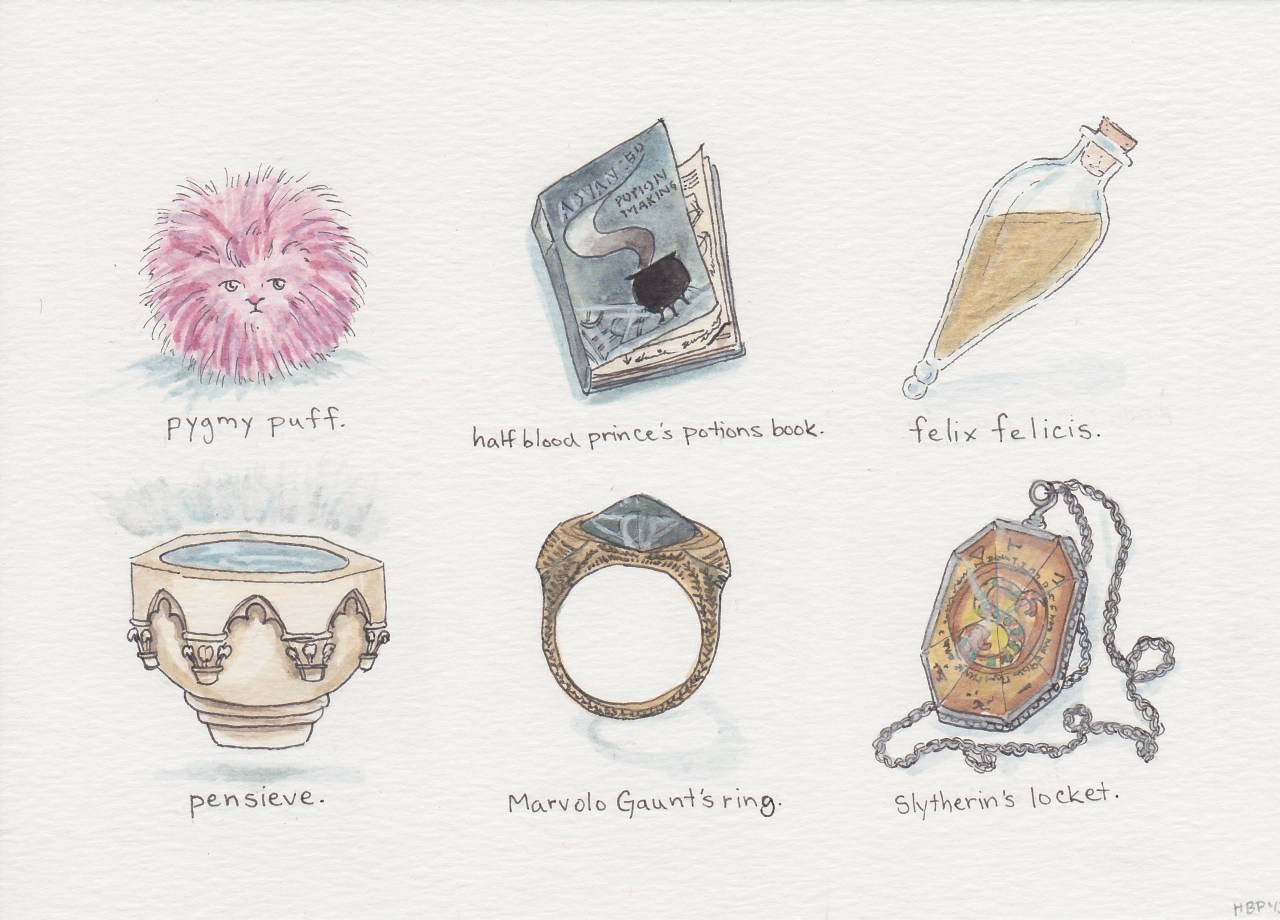 ADVANCED
POTION
MAKING
pygmy puff.
half blood prince's potions book.
felix felicis.
pensieve.
Marvolo Gaunt's ring.
Slytherin's locket.